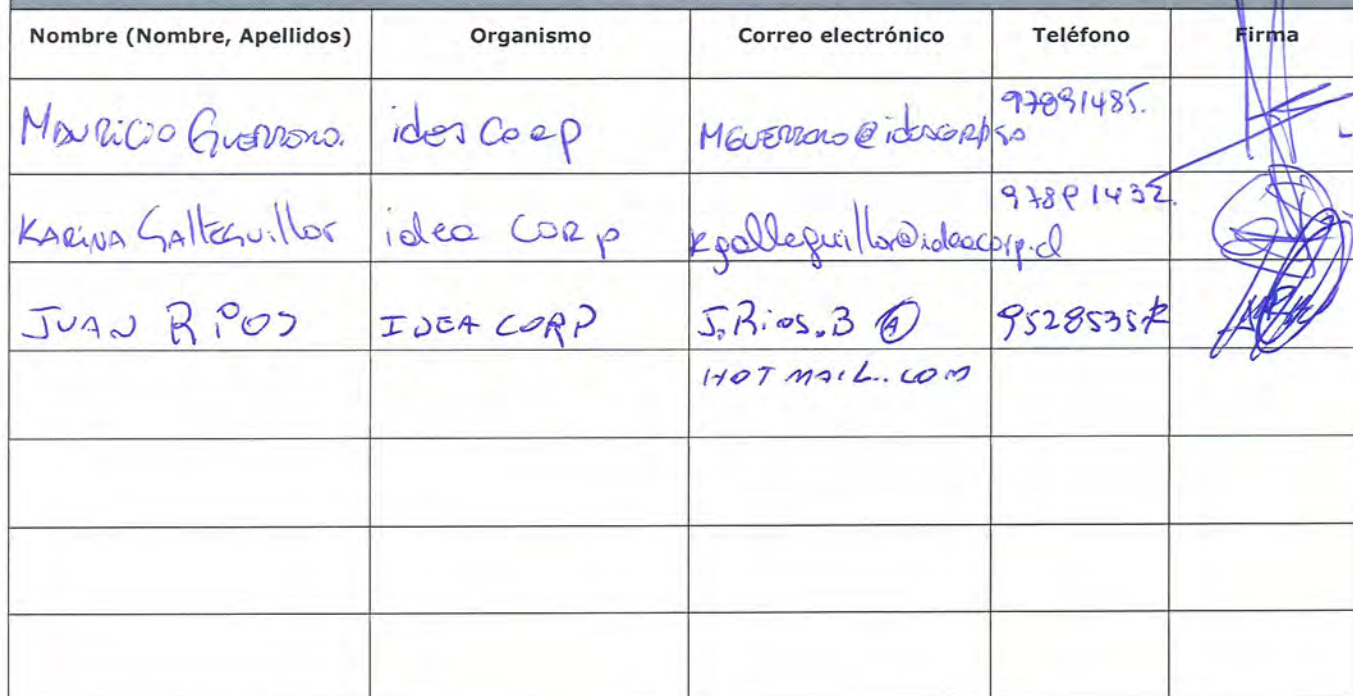 Nombre (Nombre, Apellidos) Organismo Correo electrónico Teléfono Firma
Mauricio Guerrero. idea Corp 97891485.
Karina Galleguillos idea Corp kgalleguillos@ideacorp.cl 97891432.
JUAN RIOS IDEA CORP J.Rios.B @
HOTMAIL.COM